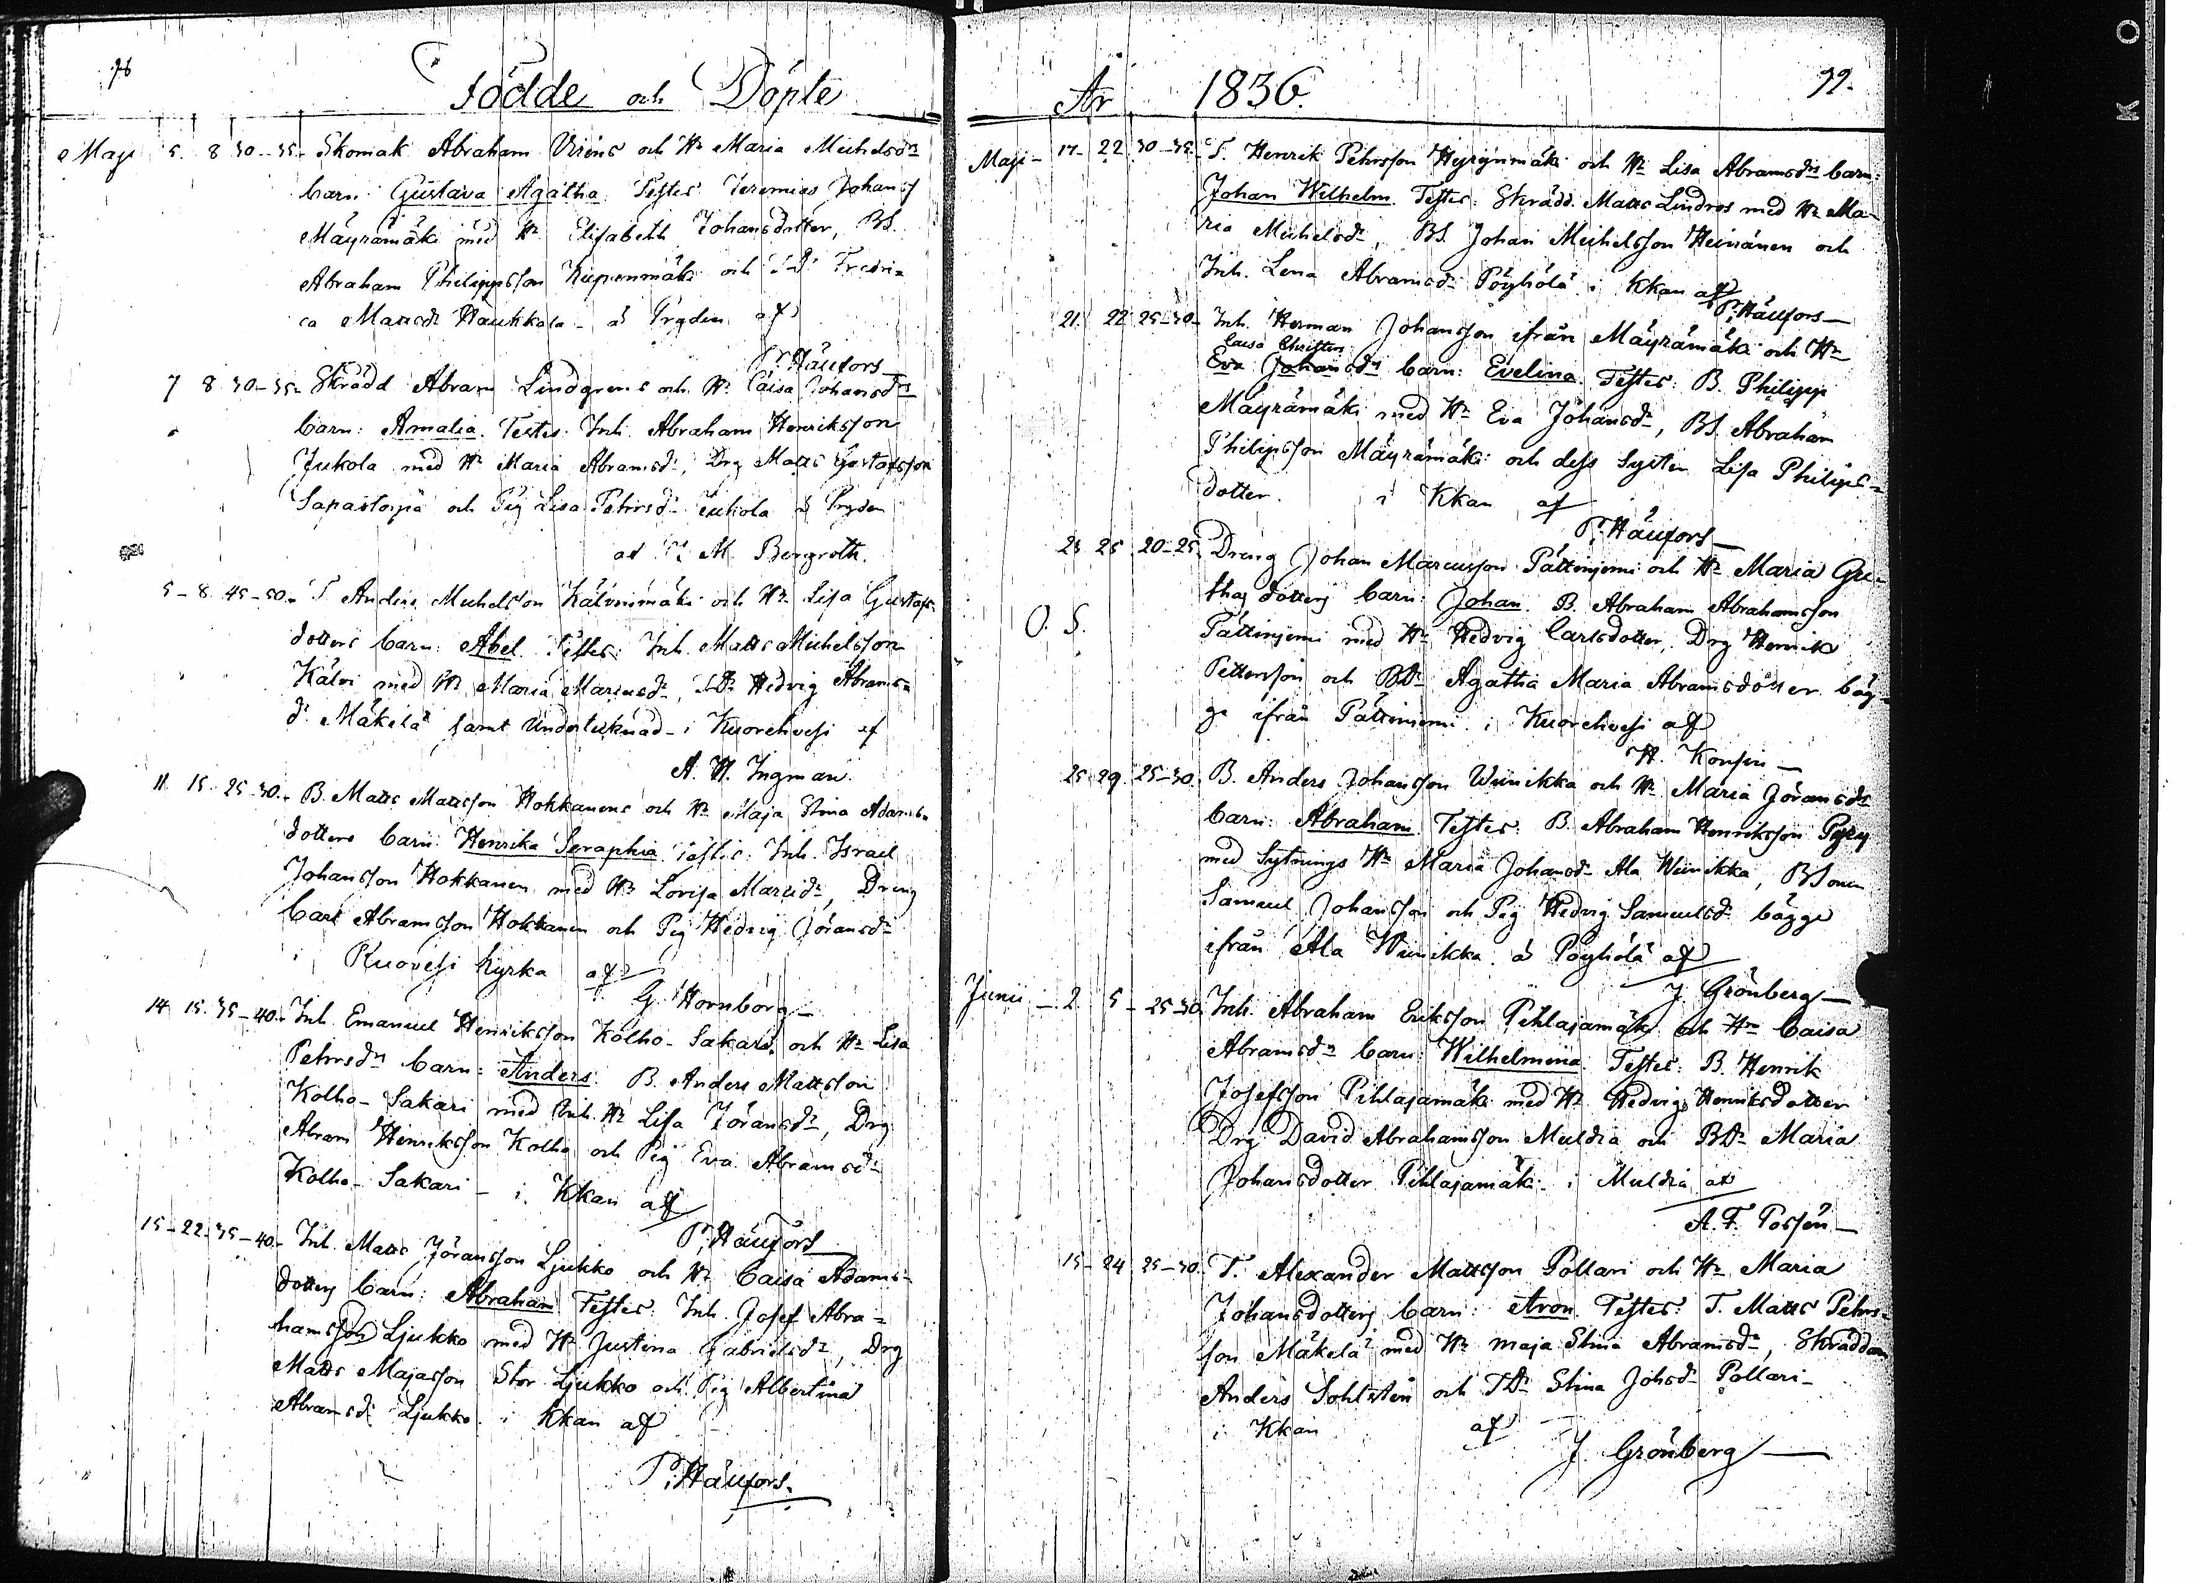 78
Födde och Döpte
Maji 5. 8 30-35. Skomak Abraham Viriens och Hr Maria Michelsdrs
barn: Gustava Agatha. Testes Jeremias Johans
Mäyrämäki med Hr Elisabeth Johansdotter, BS.
Abraham Philippsson Kiipenmäki och Fredri=
ca Mattsdr Haukkala å Pryden af
P. Häufors
7 8 30-35. Skrädd Abram Lindgrens och Hr Caisa Johansdrs
barn: Amalia. Testes. Inh. Abraham Henriksson
Jukola med Hr Maria Abramsdr, Drg Matts Gustafsson
Sapastospä och Pig Lisa Pehrsdr Jukola å Pryden
af M. Bergroth.
5-8 45-50. T Anders Michelsson Kälvinmäki och Hr Lisa Gustafs
dotters barn: Abel. Testes: Inh. Matts Michelsson
Kälvi med Hr Maria Mariusdr, TDr Hedvig Abrams=
dr Mäkelä samt Undertecknad i Kuorehvesi af
A. H. Ingman.
11. 15. 25-30. B. Matts Mattsson Hokkanens och Hr Maja Stina Adams=
dotters barn: Henrika Seraphia. Testes: Inh. Israel
Johansson Hokkanen med Hr Lovisa Marcidr, Dreng
Carl Abramsson Hokkanen och Pig Hedvig Göransdr
i Ruovesi kyrka af
G. Hornborg
14 15. 35-40. Inh. Emanuel Henriksson Kolho-Sakari och Hr Lisa
Pehrsdrs barn: Anders. B. Anders Mattsson
Kolho-Sakari med Inh. Hr Lisa Göransdr, Drg
Abram Henriksson Kolho och Pig Eva Abramsdr
Kolho-Sakari i Kkan af
P. Häufors
15-22. 35-40. Inh. Matts Jöransson Ljukko och Hr Caisa Adams-
dotters barn: Abraham. Testes: Inh. Josef Abra=
hamsson Ljukko med Hr Justina Gabrielsdr, Drg
Matts Majasson Stor Ljukko och Pig Albertina
Abramsdr Ljukko. i Kkan af
P. Häufors.
År 1836. 79.
Maji- 17- 22 30-35. T. Henrik Pehrsson Hyrynmäki och Hr Lisa Abramsdrs barn:
Johan Wilhelm. Testes: Skrädd. Matts Lindros med Hr Ma-
ria Michelsdr, BS. Johan Michelsson Heinänen och
Inh. Lena Abramsdr Pöyhölä i Kkan af
P. Häufors
21. 22 25-30. Inh. Herman Johansson ifrån Mäyrämäki och Hr
Caisa Christers
Eva Johansdrs barn: Evelina. Testes: B. Philipp
Mäyrämäki med Hr Eva Johansdr, BS. Abraham
Philipsson Mäyrämäki och dess Syster Lisa Philips=
dotter. i Kkan af
P. Häufors
23 25 20-25. Dreng Johan Marcusson Pättiniemi och Hr Maria Gre-
thas dotters barn: Johan. B. Abraham Abrahamsson
O. S.
Pättiniemi med Hr Hedvig Carlsdotter, Drg Henrik
Pettersson och BDr Agatha Maria Abramsdotter bäg-
ge ifrån Pättiniemi i Kuorehvesi af
H. Konsin
25 29. 25-30. B. Anders Johansson Wiinikka och Hr Maria Jöransdrs
barn: Abraham. Testes: B. Abraham Henriksson Pyry
med Sytnings Hr Maria Johansdr Ala Wiinikka, BSonen
Samuel Johansson och Pig Hedvig Samuelsdr bägge
ifrån Ala Wiinikka. å Pöyhölä af
J. Grönberg
Junii - 2 5- 25-30. Inh. Abraham Eriksson Pihlajamäki och Hrs Caisa
Abramsdrs barn: Wilhelmina. Testes: B. Henrik
Josefsson Pihlajamäki med Hr Hedvig Henriksdotter
Drg David Abrahamsson Muldia och BDr Maria
Johansdotter Pihlajamäki i Muldia af
A. F. Possén
15-24 25-30. T. Alexander Mattsson Pollari och Hr Maria
Johansdotters barn: Aron. Testes: T. Matts Pehrs-
son Mäkelä med Hr Maja Stina Abramsdr, Skräddaren
Anders Sohlstén och TDr Stina Johsdr Pollari-
i Kkan af
J. Grönberg